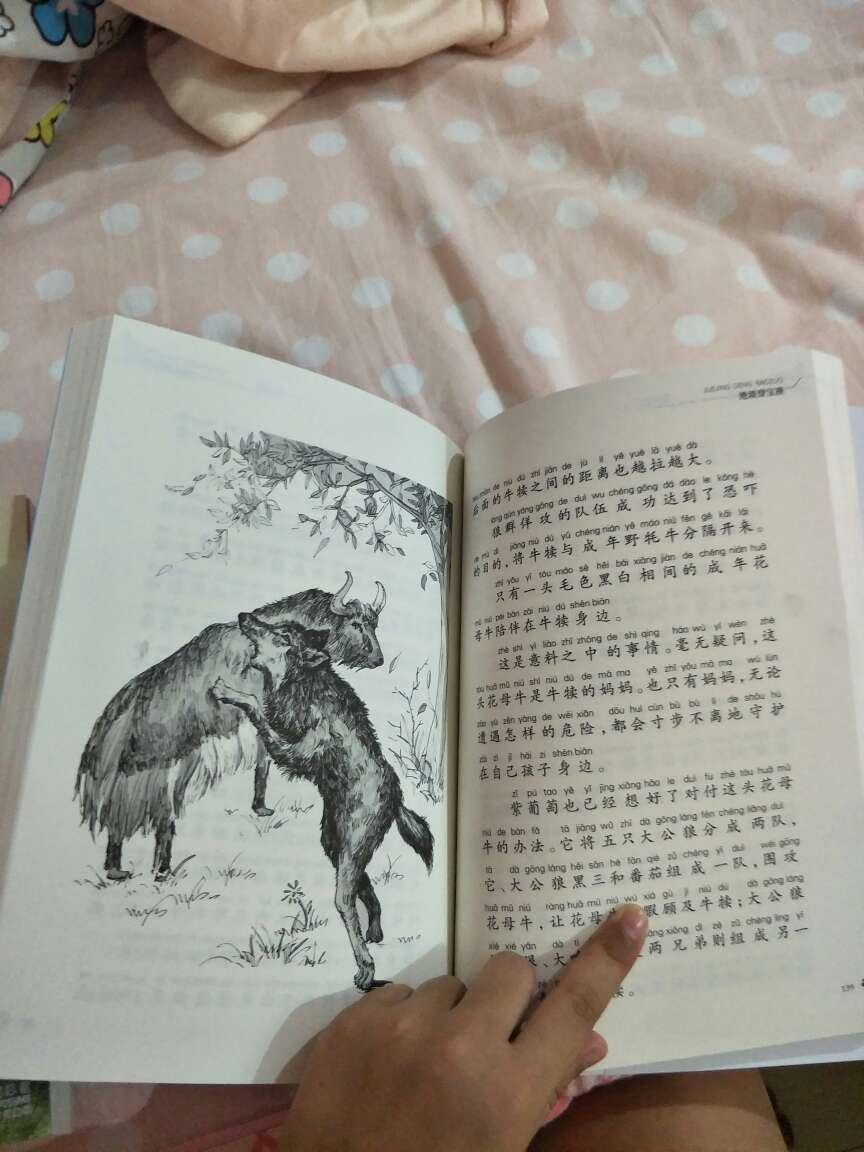 JUEJING DENG BAOZUO
绝境登宝座
miàn de niú dú zhī jiān de jù lí yě yuè lā yuè dà
后面的牛犊之间的距离也越拉越大。
láng qún yáng gōng de duì wu chéng gōng dá dào le kǒng hè
狼群佯攻的队伍成功达到了恐吓
de mù dì jiāng niú dú yǔ chéng nián yě máo niú fēn gé kāi lái
的目的,将牛犊与成年野牦牛分隔开来。
zhǐ yǒu yī tóu máo sè hēi bái xiāng jiàn de chéng nián huā
只有一头毛色黑白相间的成年花
mǔ niú péi bàn zài niú dú shēn biān
母牛陪伴在牛犊身边。
zhè shì yì liào zhī zhōng de shì qing háo wú yí wèn zhè
这是意料之中的事情。毫无疑问,这
tóu huā mǔ niú shì niú dú de mā ma yě zhǐ yǒu mā ma wú lùn
头花母牛是牛犊的妈妈。也只有妈妈,无论
zāo yù zěn yàng de wēi xiǎn dōu huì cùn bù bù lí de shǒu hù
遭遇怎样的危险,都会寸步不离地守护
zài zì jǐ hái zi shēn biān
在自己孩子身边。
zǐ pú tao yě yǐ jīng xiǎng hǎo le duì fu zhè tóu huā mǔ
紫葡萄也已经想好了对付这头花母
niú de bàn fǎ tā jiāng wǔ zhī dà gōng láng fēn chéng liǎng duì
牛的办法。它将五只大公狼分成两队,
tā dà gōng láng hēi sān hé fān qié zǔ chéng yī duì wéi gōng
它、大公狼黑三和番茄组成一队,围攻
huā mǔ niú ràng huā mǔ niú wú xiá gù jí niú dú dà gōng láng
花母牛,让花母 暇顾及牛犊;大公狼
xié xié yǎn dà xiōng dì zé zǔ chéng lìng yī
眼、大 两兄弟则组成另一
。
139